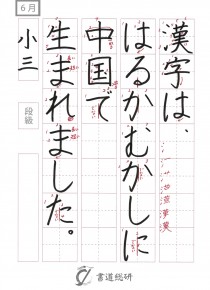 6月
漢字は、
はるかむかしに
中国で
生まれました。
段級
小三
書道総研